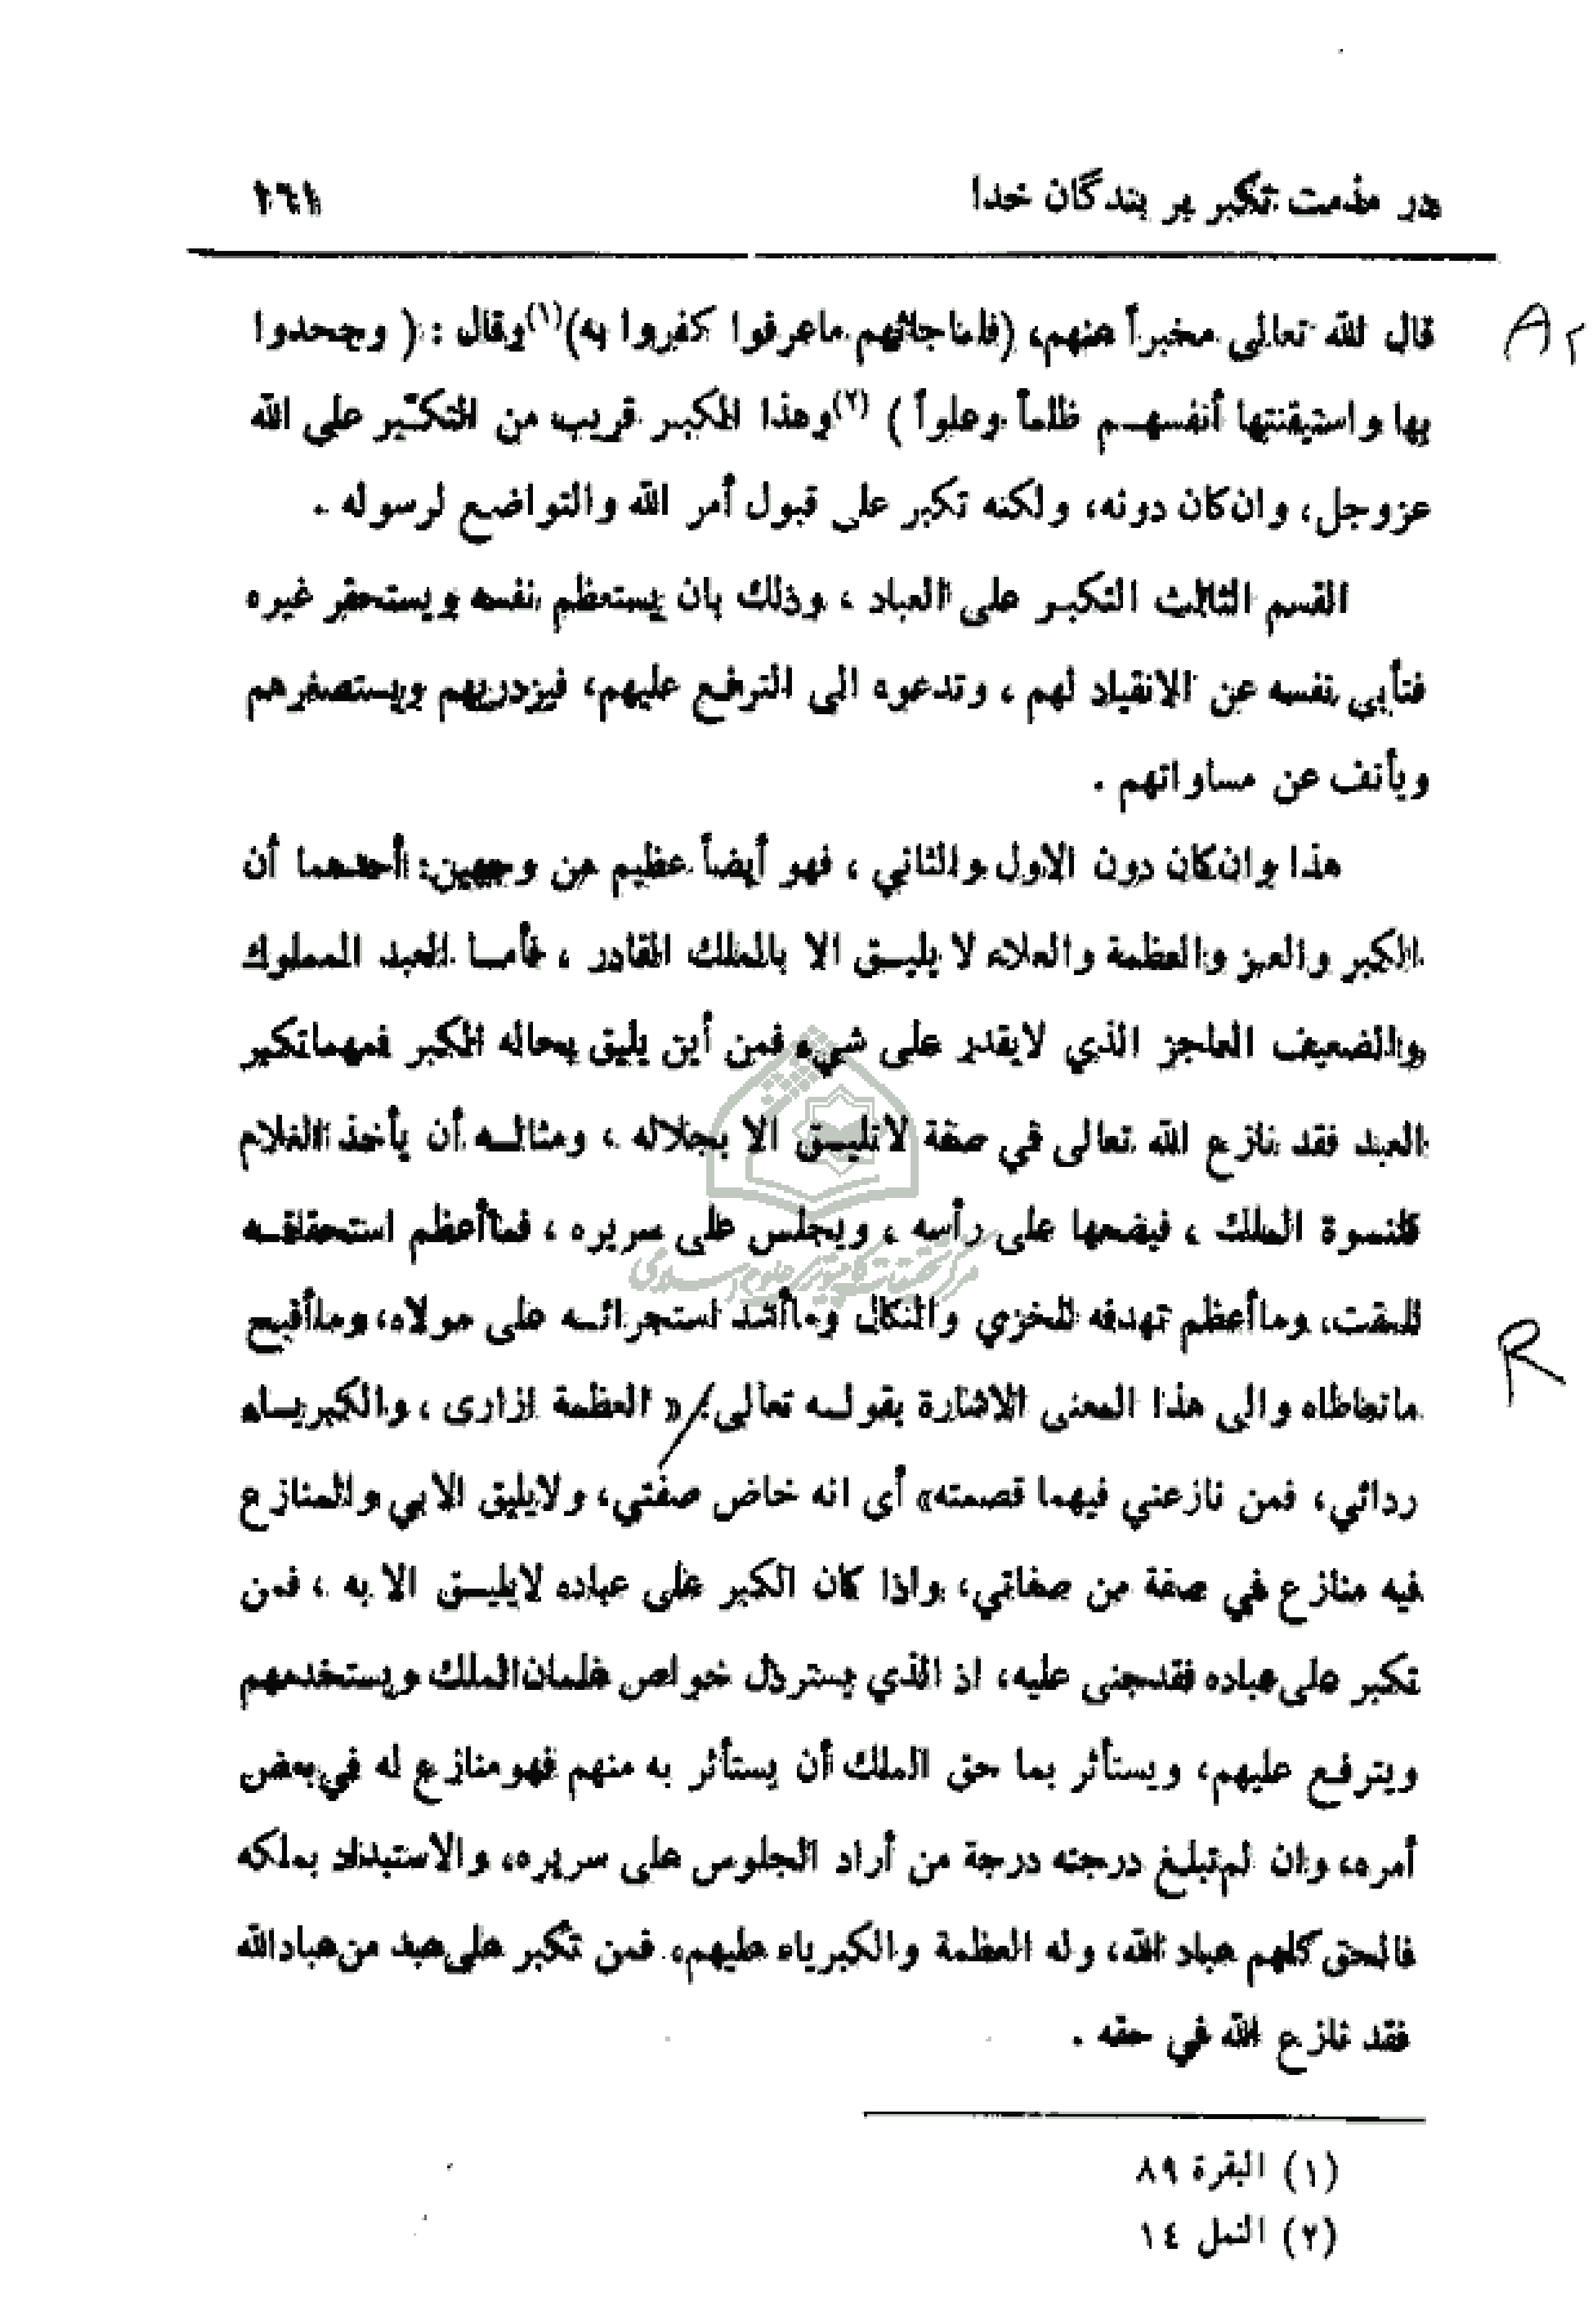 در مذمت تكبر بر بندگان خدا ١٦١
قال الله تعالى مخبراً عنهم، (فلما جائهم ماعرفوا كفروا به)(١) وقال : ( وجحدوا
بها واستيقنتها أنفسهم ظلماً وعلواً ) (٢) وهذا الكبر قريب من التكبّر على الله
عزوجل، وان كان دونه، ولكنه تكبر على قبول أمر الله والتواضع لرسوله .
القسم الثالث التكبر على العباد ، وذلك بان يستعظم نفسه ويستحقر غيره
فتأبى نفسه عن الانقياد لهم ، وتدعوه الى الترفع عليهم، فيزدريهم ويستصغرهم
ويأنف عن مساواتهم .
هذا وان كان دون الاول والثاني ، فهو أيضاً عظيم من وجهين: أحدهما أن
الكبر والعز والعظمة والعلاء لا يليق الا بالملك القادر ، فأما العبد المملوك
والضعيف العاجز الذي لايقدر على شيء فمن أين يليق بحاله الكبر فمهماتكبر
العبد فقد نازع الله تعالى في صفة لاتليق الا بجلاله ، ومثاله أن يأخذ الغلام
قلنسوة الملك ، فيضعها على رأسه ، ويجلس على سريره ، فماأعظم استحقاقه
للمقت، وماأعظم تهدفه للخزي والنكال وماأشد استجرائه على مولاه، وماأقبح
ماتعاطاه والى هذا المعنى الاشارة بقوله تعالى: « العظمة ازارى ، والكبرياء
ردائي، فمن نازعني فيهما قصمته» أى انه خاض صفتي، ولايليق الابي والمنازع
فيه منازع في صفة من صفاتي، واذا كان الكبر على عباده لايليق الا به ، فمن
تكبر على عباده فقدجنى عليه، اذ الذي يسترذل خواص غلمان الملك ويستخدمهم
ويترفع عليهم، ويستأثر بما حق الملك أن يستأثر به منهم فهو منازع له في بعض
أمره، وان لم تبلغ درجته درجة من أراد الجلوس على سريره، والاستبداد بملكه
فالحق كلهم عباد الله، وله العظمة والكبرياء عليهم، فمن تكبر على عبد من عبادالله
فقد نازع الله في حقه .
(١) البقرة ٨٩
(٢) النمل ١٤
مركز تحقيقات كامپيوترى علوم اسلامى
R